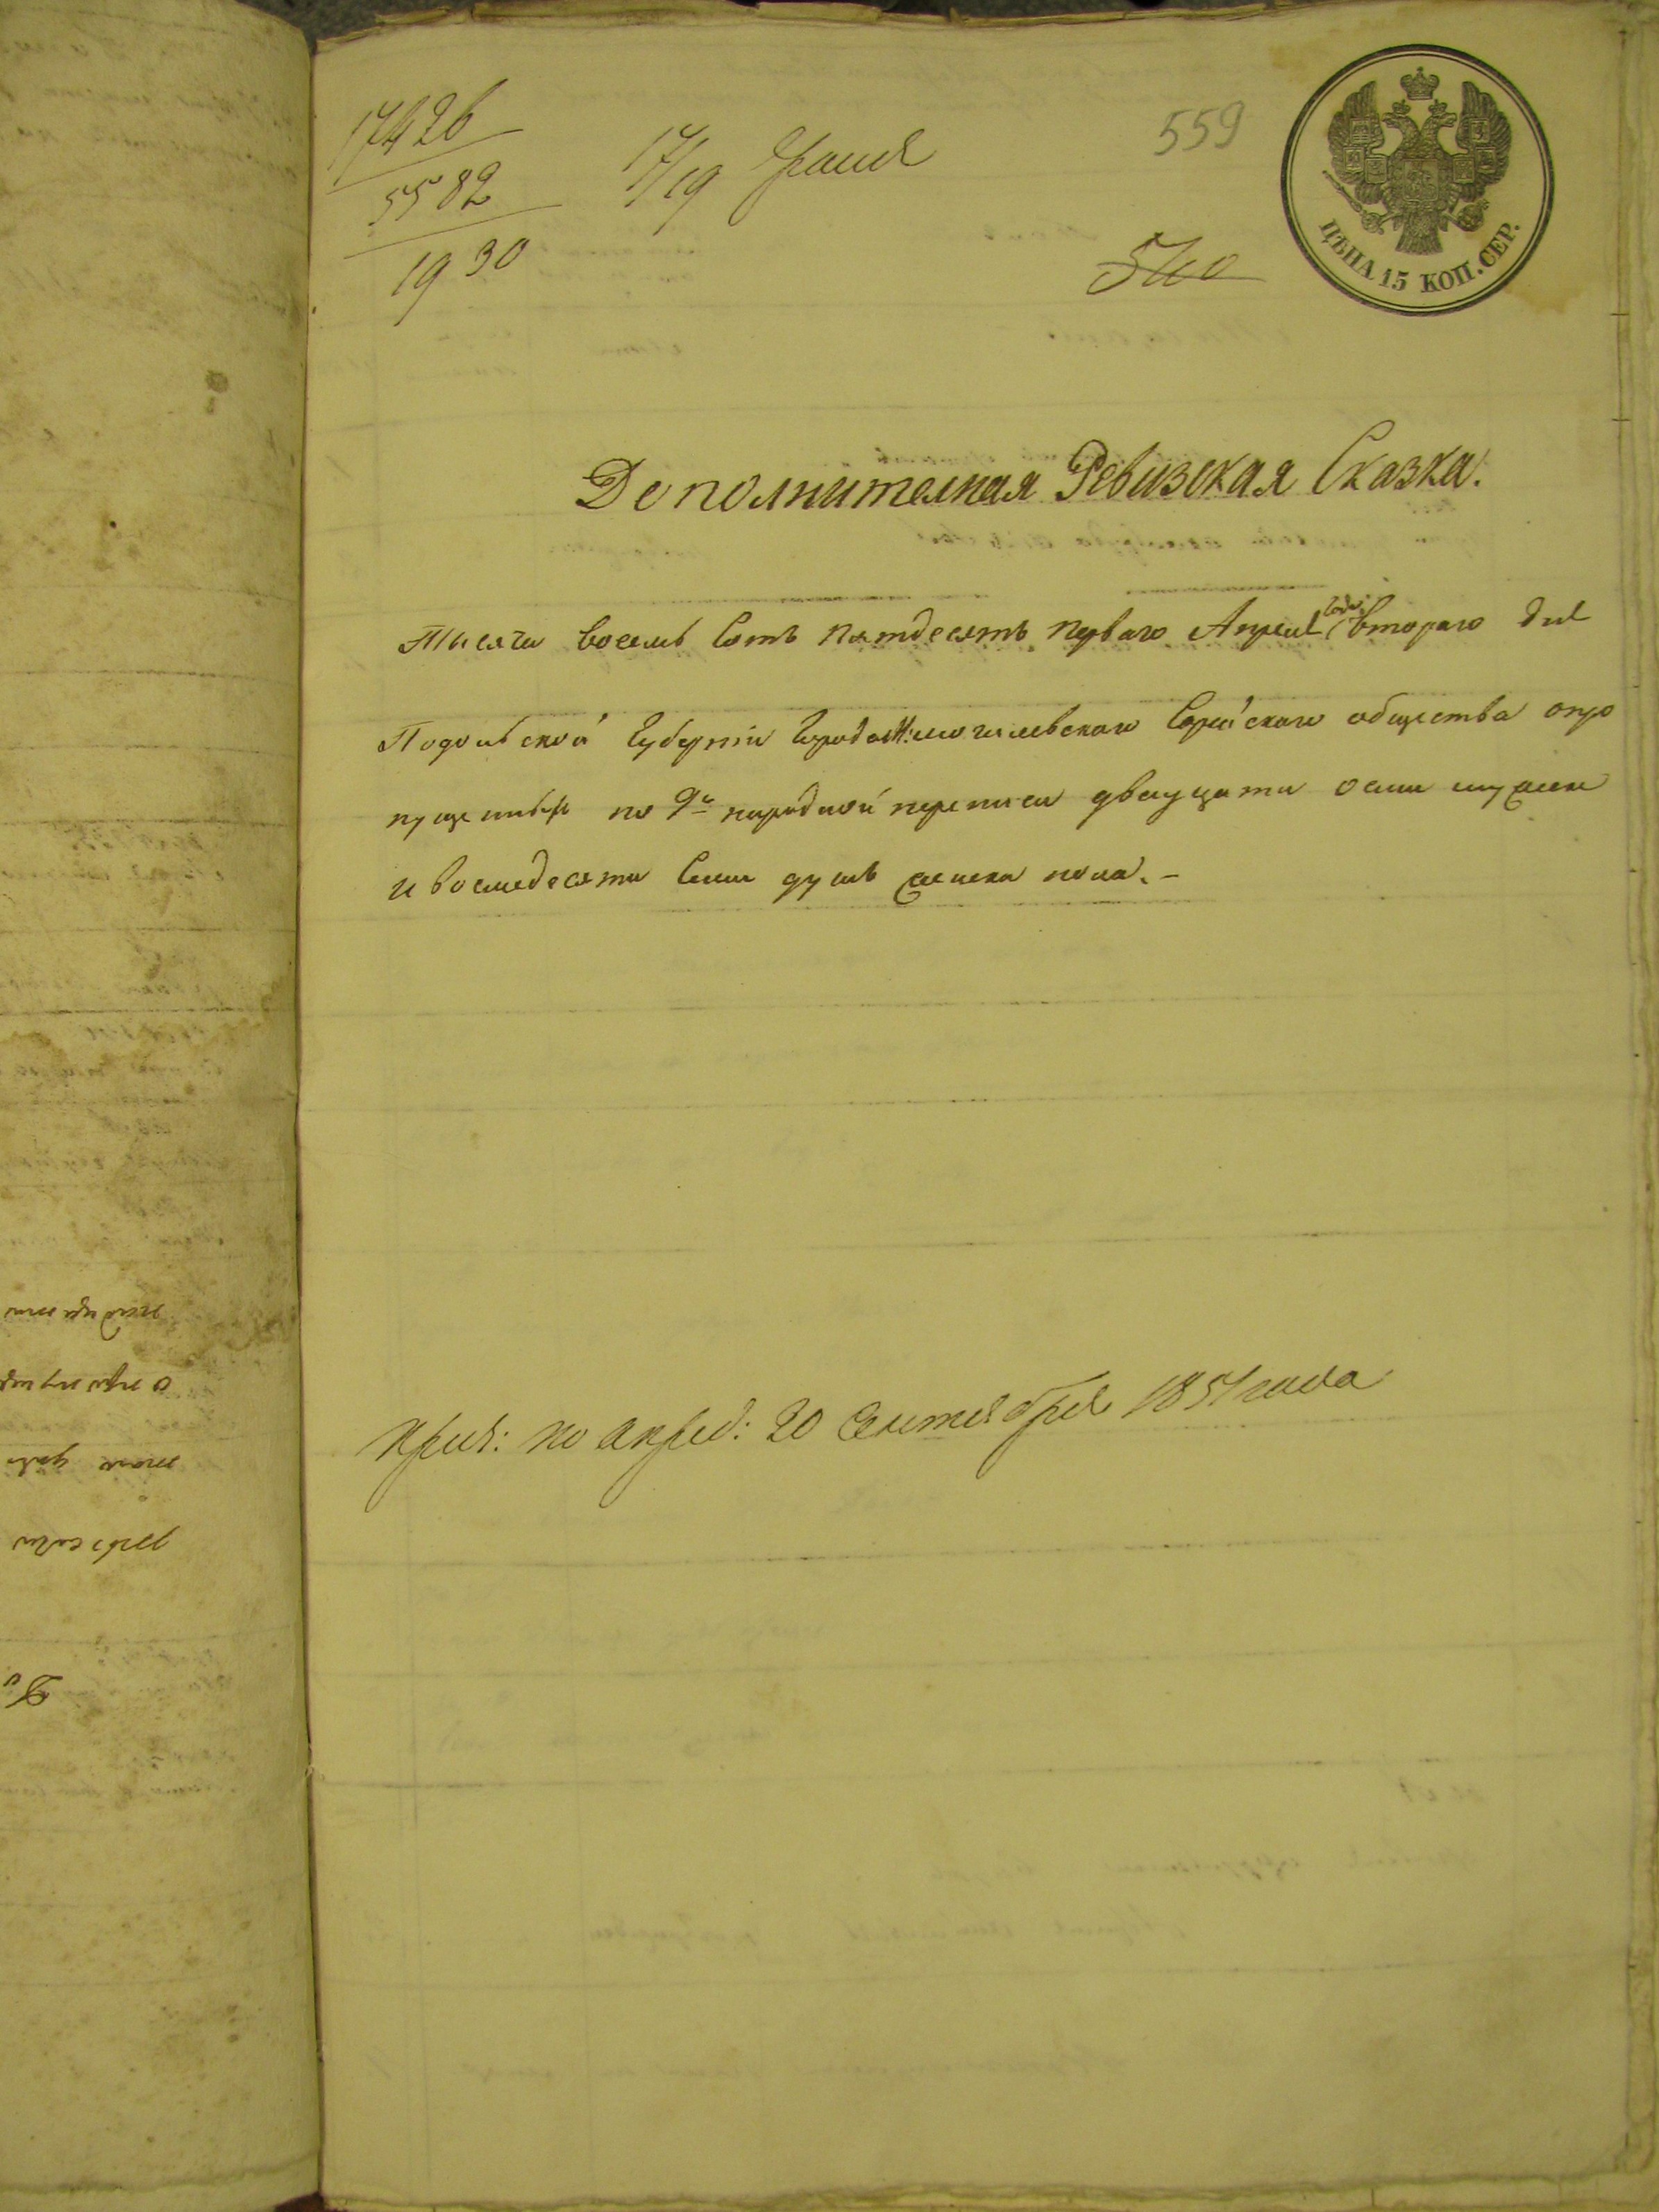 17426
5582
1930
17/19
559
560
ЦѢНА 15 КОП. СЕР.
Дополнителная Ревизская Сказка.
Тысяча восемь Сотъ пятдесятъ перваго года Апреля втораго дня
Подольской Губерніи города Могилевскаго Еврейскаго общества опро
пущенныхъ по 9й народной переписи двадцати осми мужеска
и восмедесяти семи душъ женска пола. -
20 Сентября 1851 года